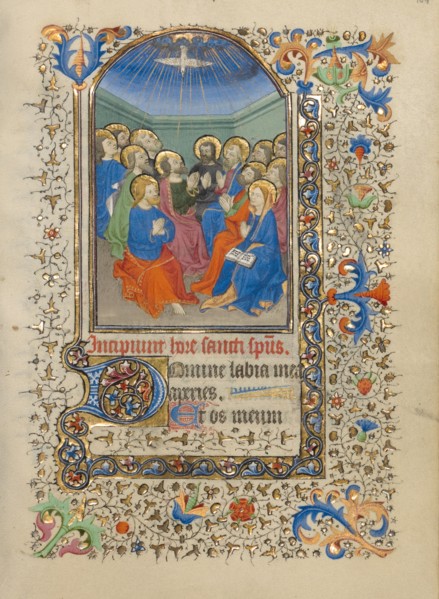 Incipiunt hore sancti sp̃us.
Domine labia mea
aperies.
Et os meum